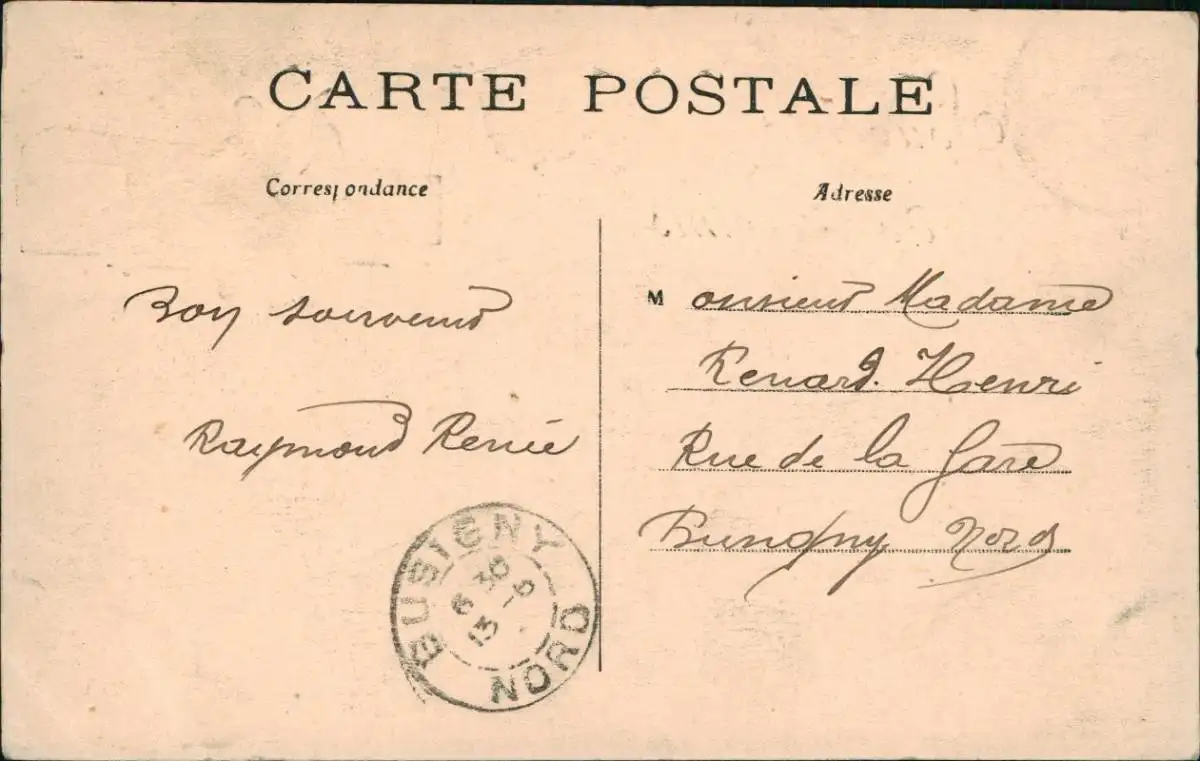 CARTE POSTALE
Correspondance
Adresse
Bon souvenir
Raymond Renée
Monsieur Madame
Renard. Henri
Rue de la Gare
Busigny Nord
BUSIGNY
6 30
13 -6
NORD